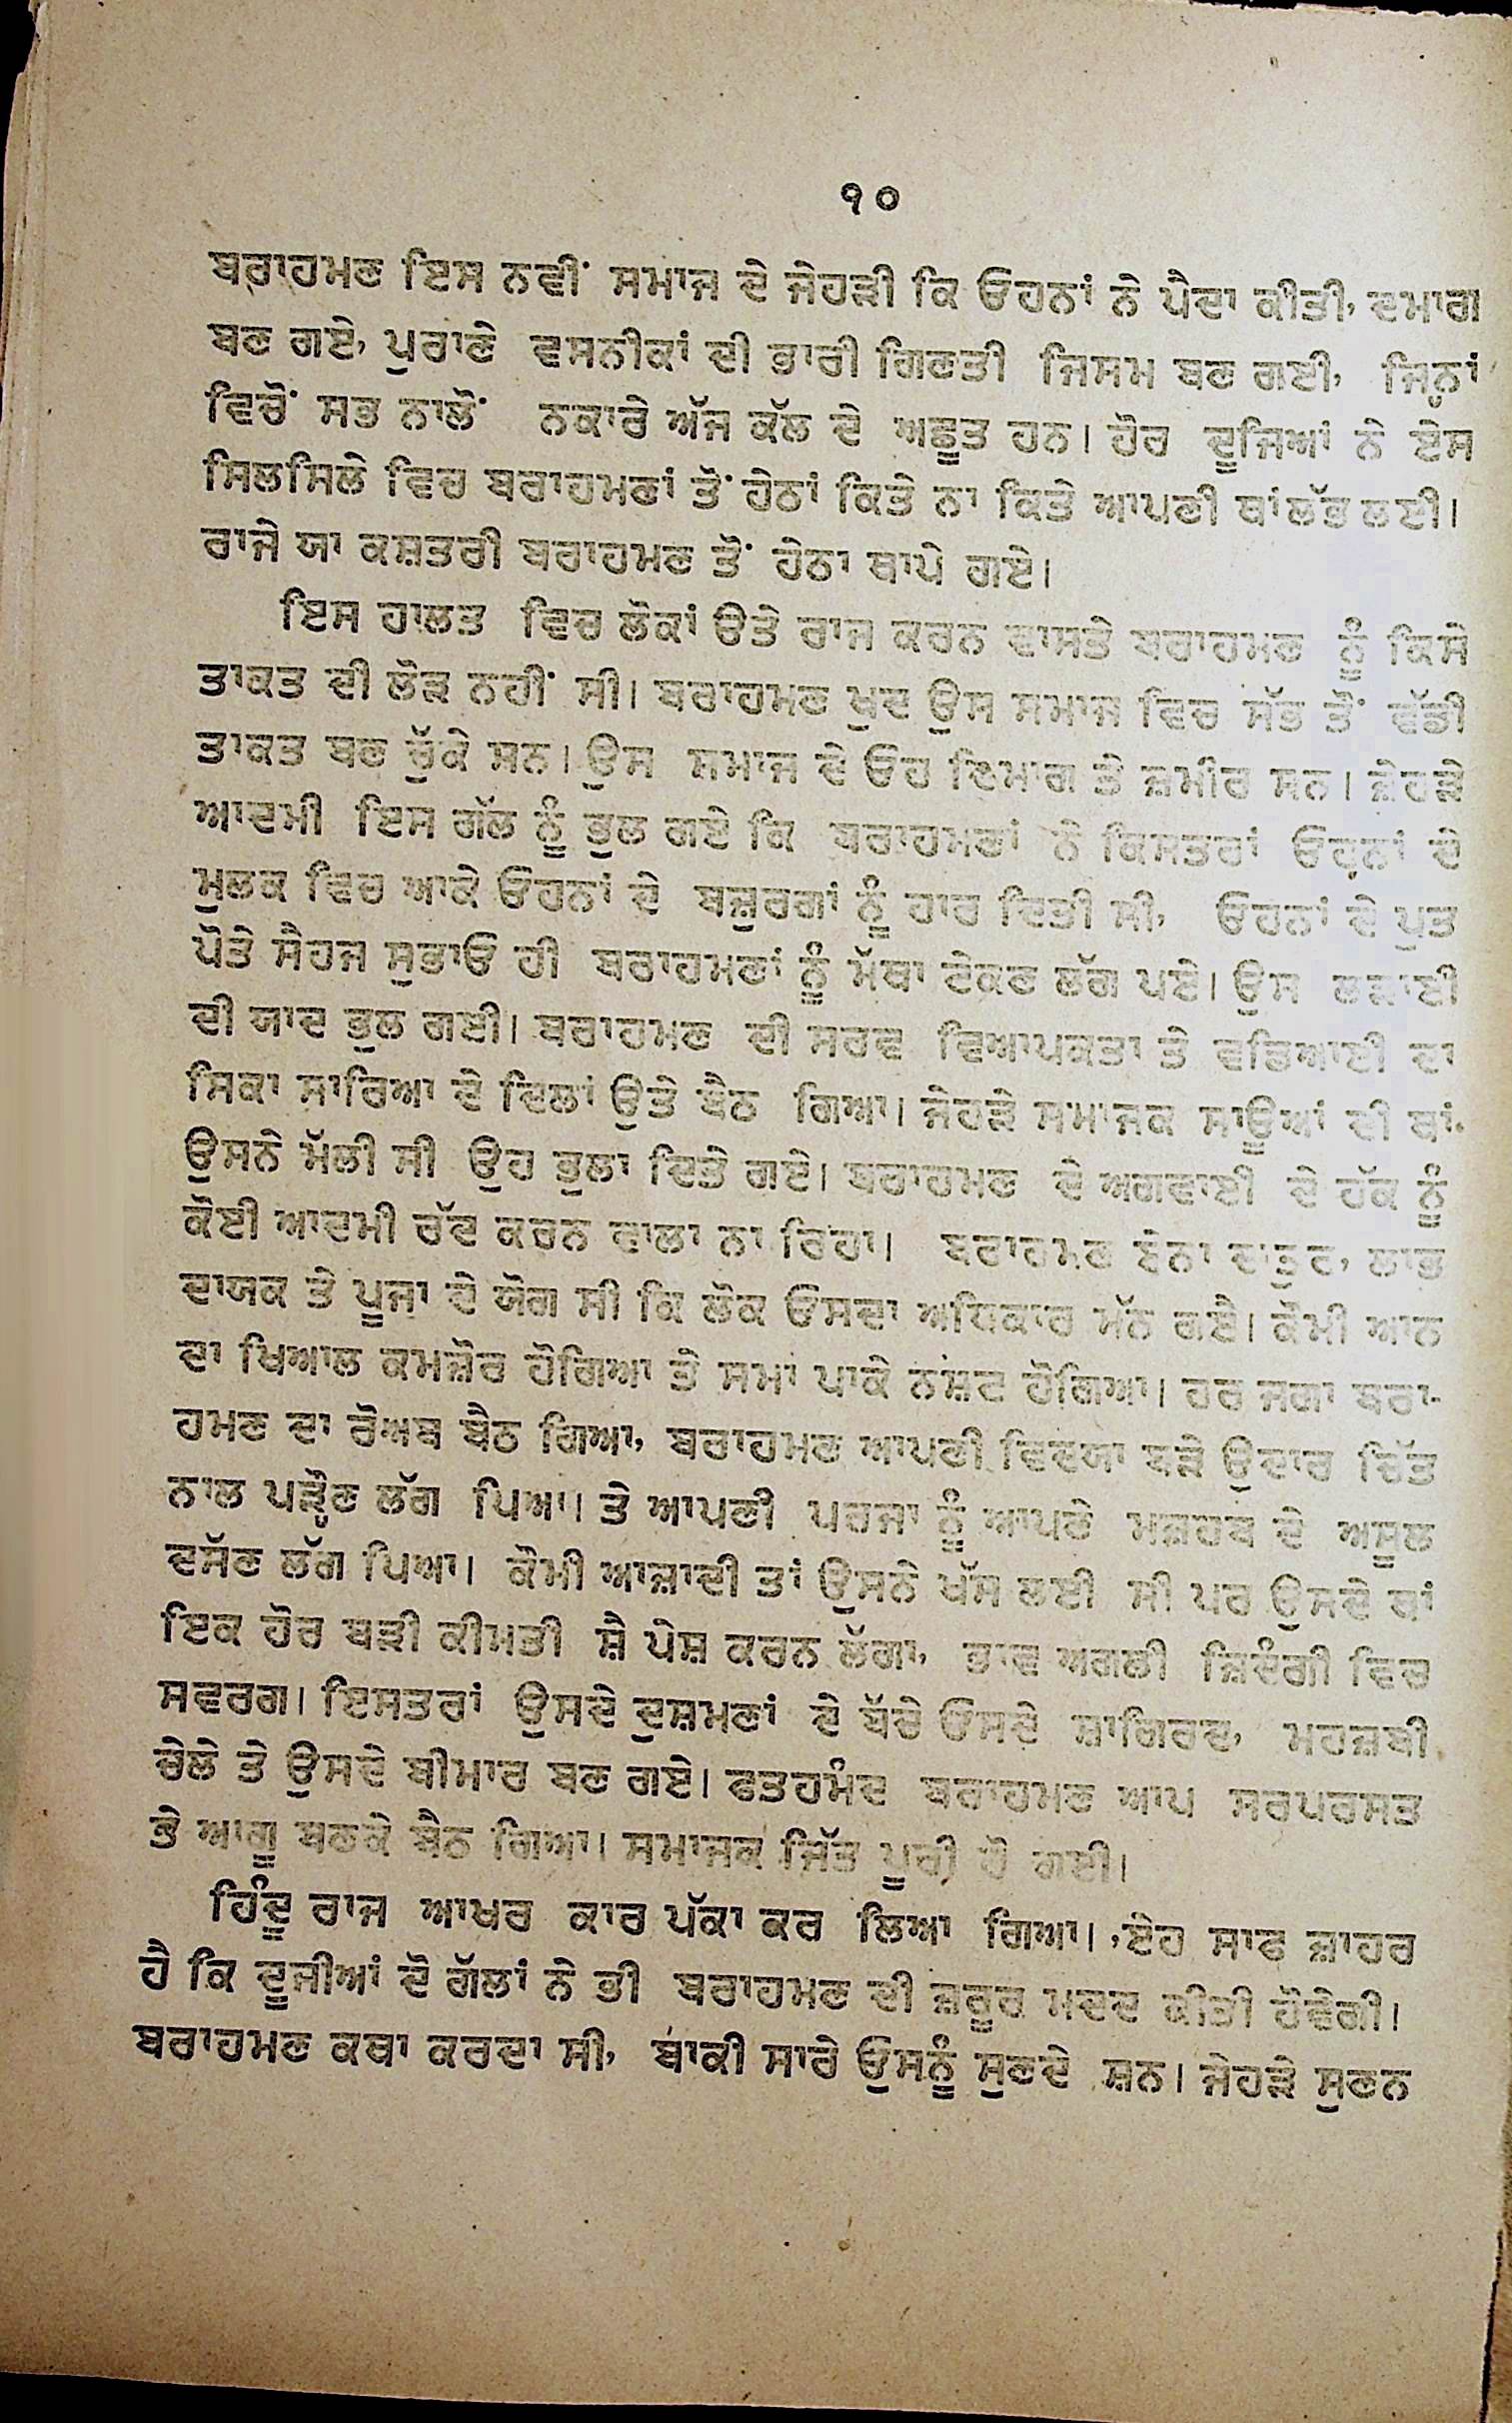 ੧੦
ਬਰਾਹਮਣ ਇਸ ਨਵੀਂ ਸਮਾਜ ਦੇ ਜੇਹੜੀ ਕਿ ਓਹਨਾਂ ਨੇ ਪੈਦਾ ਕੀਤੀ, ਦਮਾਗ
ਬਣ ਗਏ, ਪੁਰਾਣੇ ਵਸਨੀਕਾਂ ਦੀ ਭਾਰੀ ਗਿਣਤੀ ਜਿਸਮ ਬਣ ਗਈ, ਜਿਨ੍ਹਾਂ
ਵਿਚੋਂ ਸਭ ਨਾਲੋਂ ਨਕਾਰੇ ਅੱਜ ਕੱਲ ਦੇ ਅਛੂਤ ਹਨ। ਹੋਰ ਦੂਜਿਆਂ ਨੇ ਏਸ
ਸਿਲਸਿਲੇ ਵਿਚ ਬਰਾਹਮਣਾਂ ਤੋਂ ਹੇਠਾਂ ਕਿਤੇ ਨਾ ਕਿਤੇ ਆਪਣੀ ਥਾਂ ਲੱਭ ਲਈ।
ਰਾਜੇ ਯਾ ਕਸ਼ਤਰੀ ਬਰਾਹਮਣ ਤੋਂ ਹੇਠਾ ਥਾਪੇ ਗਏ।
ਇਸ ਹਾਲਤ ਵਿਚ ਲੋਕਾਂ ਉਤੇ ਰਾਜ ਕਰਨ ਵਾਸਤੇ ਬਰਾਹਮਣ ਨੂੰ ਕਿਸੇ
ਤਾਕਤ ਦੀ ਲੋੜ ਨਹੀਂ ਸੀ। ਬਰਾਹਮਣ ਖੁਦ ਉਸ ਸਮਾਜ ਵਿਚ ਸੱਭ ਤੋਂ ਵੱਡੀ
ਤਾਕਤ ਬਣ ਚੁੱਕੇ ਸਨ। ਉਸ ਸਮਾਜ ਦੇ ਓਹ ਦਿਮਾਗ ਤੇ ਜ਼ਮੀਰ ਸਨ। ਜੇਹੜੇ
ਆਦਮੀ ਇਸ ਗੱਲ ਨੂੰ ਭੁਲ ਗਏ ਕਿ ਬਰਾਹਮਣਾਂ ਨੇ ਕਿਸਤਰਾਂ ਓਨ੍ਹਾਂ ਦੇ
ਮੁਲਕ ਵਿਚ ਆਕੇ ਓਹਨਾਂ ਦੇ ਬਜ਼ੁਰਗਾਂ ਨੂੰ ਹਾਰ ਦਿਤੀ ਸੀ, ਓਹਨਾਂ ਦੇ ਪੁਤ
ਪੋਤੇ ਸੈਹਜ ਸੁਭਾਓ ਹੀ ਬਰਾਹਮਣਾਂ ਨੂੰ ਮੱਥਾ ਟੇਕਣ ਲੱਗ ਪਏ। ਉਸ ਲੜਾਈ
ਦੀ ਯਾਦ ਭੁਲ ਗਈ। ਬਰਾਹਮਣ ਦੀ ਸਰਵ ਵਿਆਪਕਤਾ ਤੇ ਵਡਿਆਈ ਦਾ
ਸਿਕਾ ਸਾਰਿਆ ਦੇ ਦਿਲਾਂ ਉਤੇ ਬੈਠ ਗਿਆ। ਜੇਹੜੇ ਸਮਾਜਕ ਸਾਊਆਂ ਦੀ ਥਾਂ
ਉਸਨੇ ਮੱਲੀ ਸੀ ਉਹ ਭੁਲਾ ਦਿਤੇ ਗਏ। ਬਰਾਹਮਣ ਦੇ ਅਗਵਾਈ ਦੇ ਹੱਕ ਨੂੰ
ਕੋਈ ਆਦਮੀ ਰੱਦ ਕਰਨ ਵਾਲਾ ਨਾ ਰਿਹਾ। ਬਰਾਹਮਣ ਏਨਾ ਚਾਤੁਰ, ਲਾਭ
ਦਾਯਕ ਤੇ ਪੂਜਾ ਦੇ ਯੋਗ ਸੀ ਕਿ ਲੋਕ ਓਸਦਾ ਅਧਿਕਾਰ ਮੰਨ ਗਏ। ਕੌਮੀ ਆਨ
ਦਾ ਖਿਆਲ ਕਮਜ਼ੋਰ ਹੋਗਿਆ ਤੇ ਸਮਾਂ ਪਾਕੇ ਨਸ਼ਟ ਹੋਗਿਆ। ਹਰ ਜਗਾ ਬਰਾ-
ਹਮਣ ਦਾ ਰੋਅਬ ਬੈਠ ਗਿਆ, ਬਰਾਹਮਣ ਆਪਣੀ ਵਿਦਯਾ ਬੜੇ ਉਦਾਰ ਚਿੱਤ
ਨਾਲ ਪੜ੍ਹੌਣ ਲੱਗ ਪਿਆ। ਤੇ ਆਪਣੀ ਪਰਜਾ ਨੂੰ ਆਪਣੇ ਮਜ਼ਹਬ ਦੇ ਅਸੂਲ
ਦਸੱਣ ਲੱਗ ਪਿਆ। ਕੌਮੀ ਆਜ਼ਾਦੀ ਤਾਂ ਉਸਨੇ ਖੱਸ ਲਈ ਸੀ ਪਰ ਉਸਦੇ ਥਾਂ
ਇਕ ਹੋਰ ਬੜੀ ਕੀਮਤੀ ਸ਼ੈ ਪੇਸ਼ ਕਰਨ ਲੱਗਾ, ਭਾਵ ਅਗਲੀ ਜ਼ਿੰਦਗੀ ਵਿਚ
ਸਵਰਗ। ਇਸਤਰਾਂ ਉਸਦੇ ਦੁਸ਼ਮਣਾਂ ਦੇ ਬੱਚੇ ਓਸਦੇ ਸ਼ਾਗਿਰਦ, ਮਹਜ਼ਬੀ
ਚੇਲੇ ਤੇ ਉਸਦੇ ਬੀਮਾਰ ਬਣ ਗਏ। ਫਤਹਮੰਦ ਬਰਾਹਮਣ ਆਪ ਸਰਪਰਸਤ
ਤੇ ਆਗੂ ਬਣਕੇ ਬੈਠ ਗਿਆ। ਸਮਾਜਕ ਜਿੱਤ ਪੂਰੀ ਹੋ ਗਈ।
ਹਿੰਦੂ ਰਾਜ ਆਖਰ ਕਾਰ ਪੱਕਾ ਕਰ ਲਿਆ ਗਿਆ। ,ਏਹ ਸਾਫ ਜ਼ਾਹਰ
ਹੈ ਕਿ ਦੂਜੀਆਂ ਦੋ ਗੱਲਾਂ ਨੇ ਭੀ ਬਰਾਹਮਣ ਦੀ ਜ਼ਰੂਰ ਮਦਦ ਕੀਤੀ ਹੋਵੇਗੀ।
ਬਰਾਹਮਣ ਕਥਾ ਕਰਦਾ ਸੀ, ਬਾਕੀ ਸਾਰੇ ਓੁਸਨੂੰ ਸੁਣਦੇ ਸ਼ਨ। ਜੇਹੜੇ ਸੁਣਨ